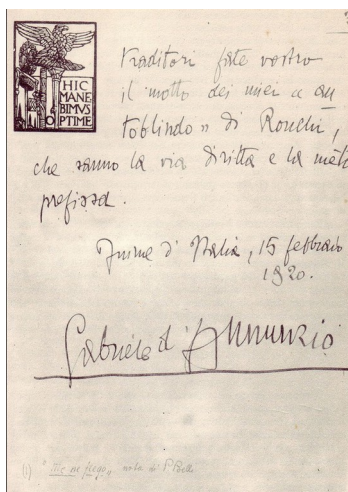 HIC
MANE
BIMVS
OPTIME
Traditori fate vostro
il motto dei miei "au
toblindo" di Ronchi,
che sanno la via diritta e la mèta
prefissa.
Fiume d'Italia, 15 febbraio
1920.
Gabriele d'Annunzio
(1) "Me ne frego" nota di P. Belli